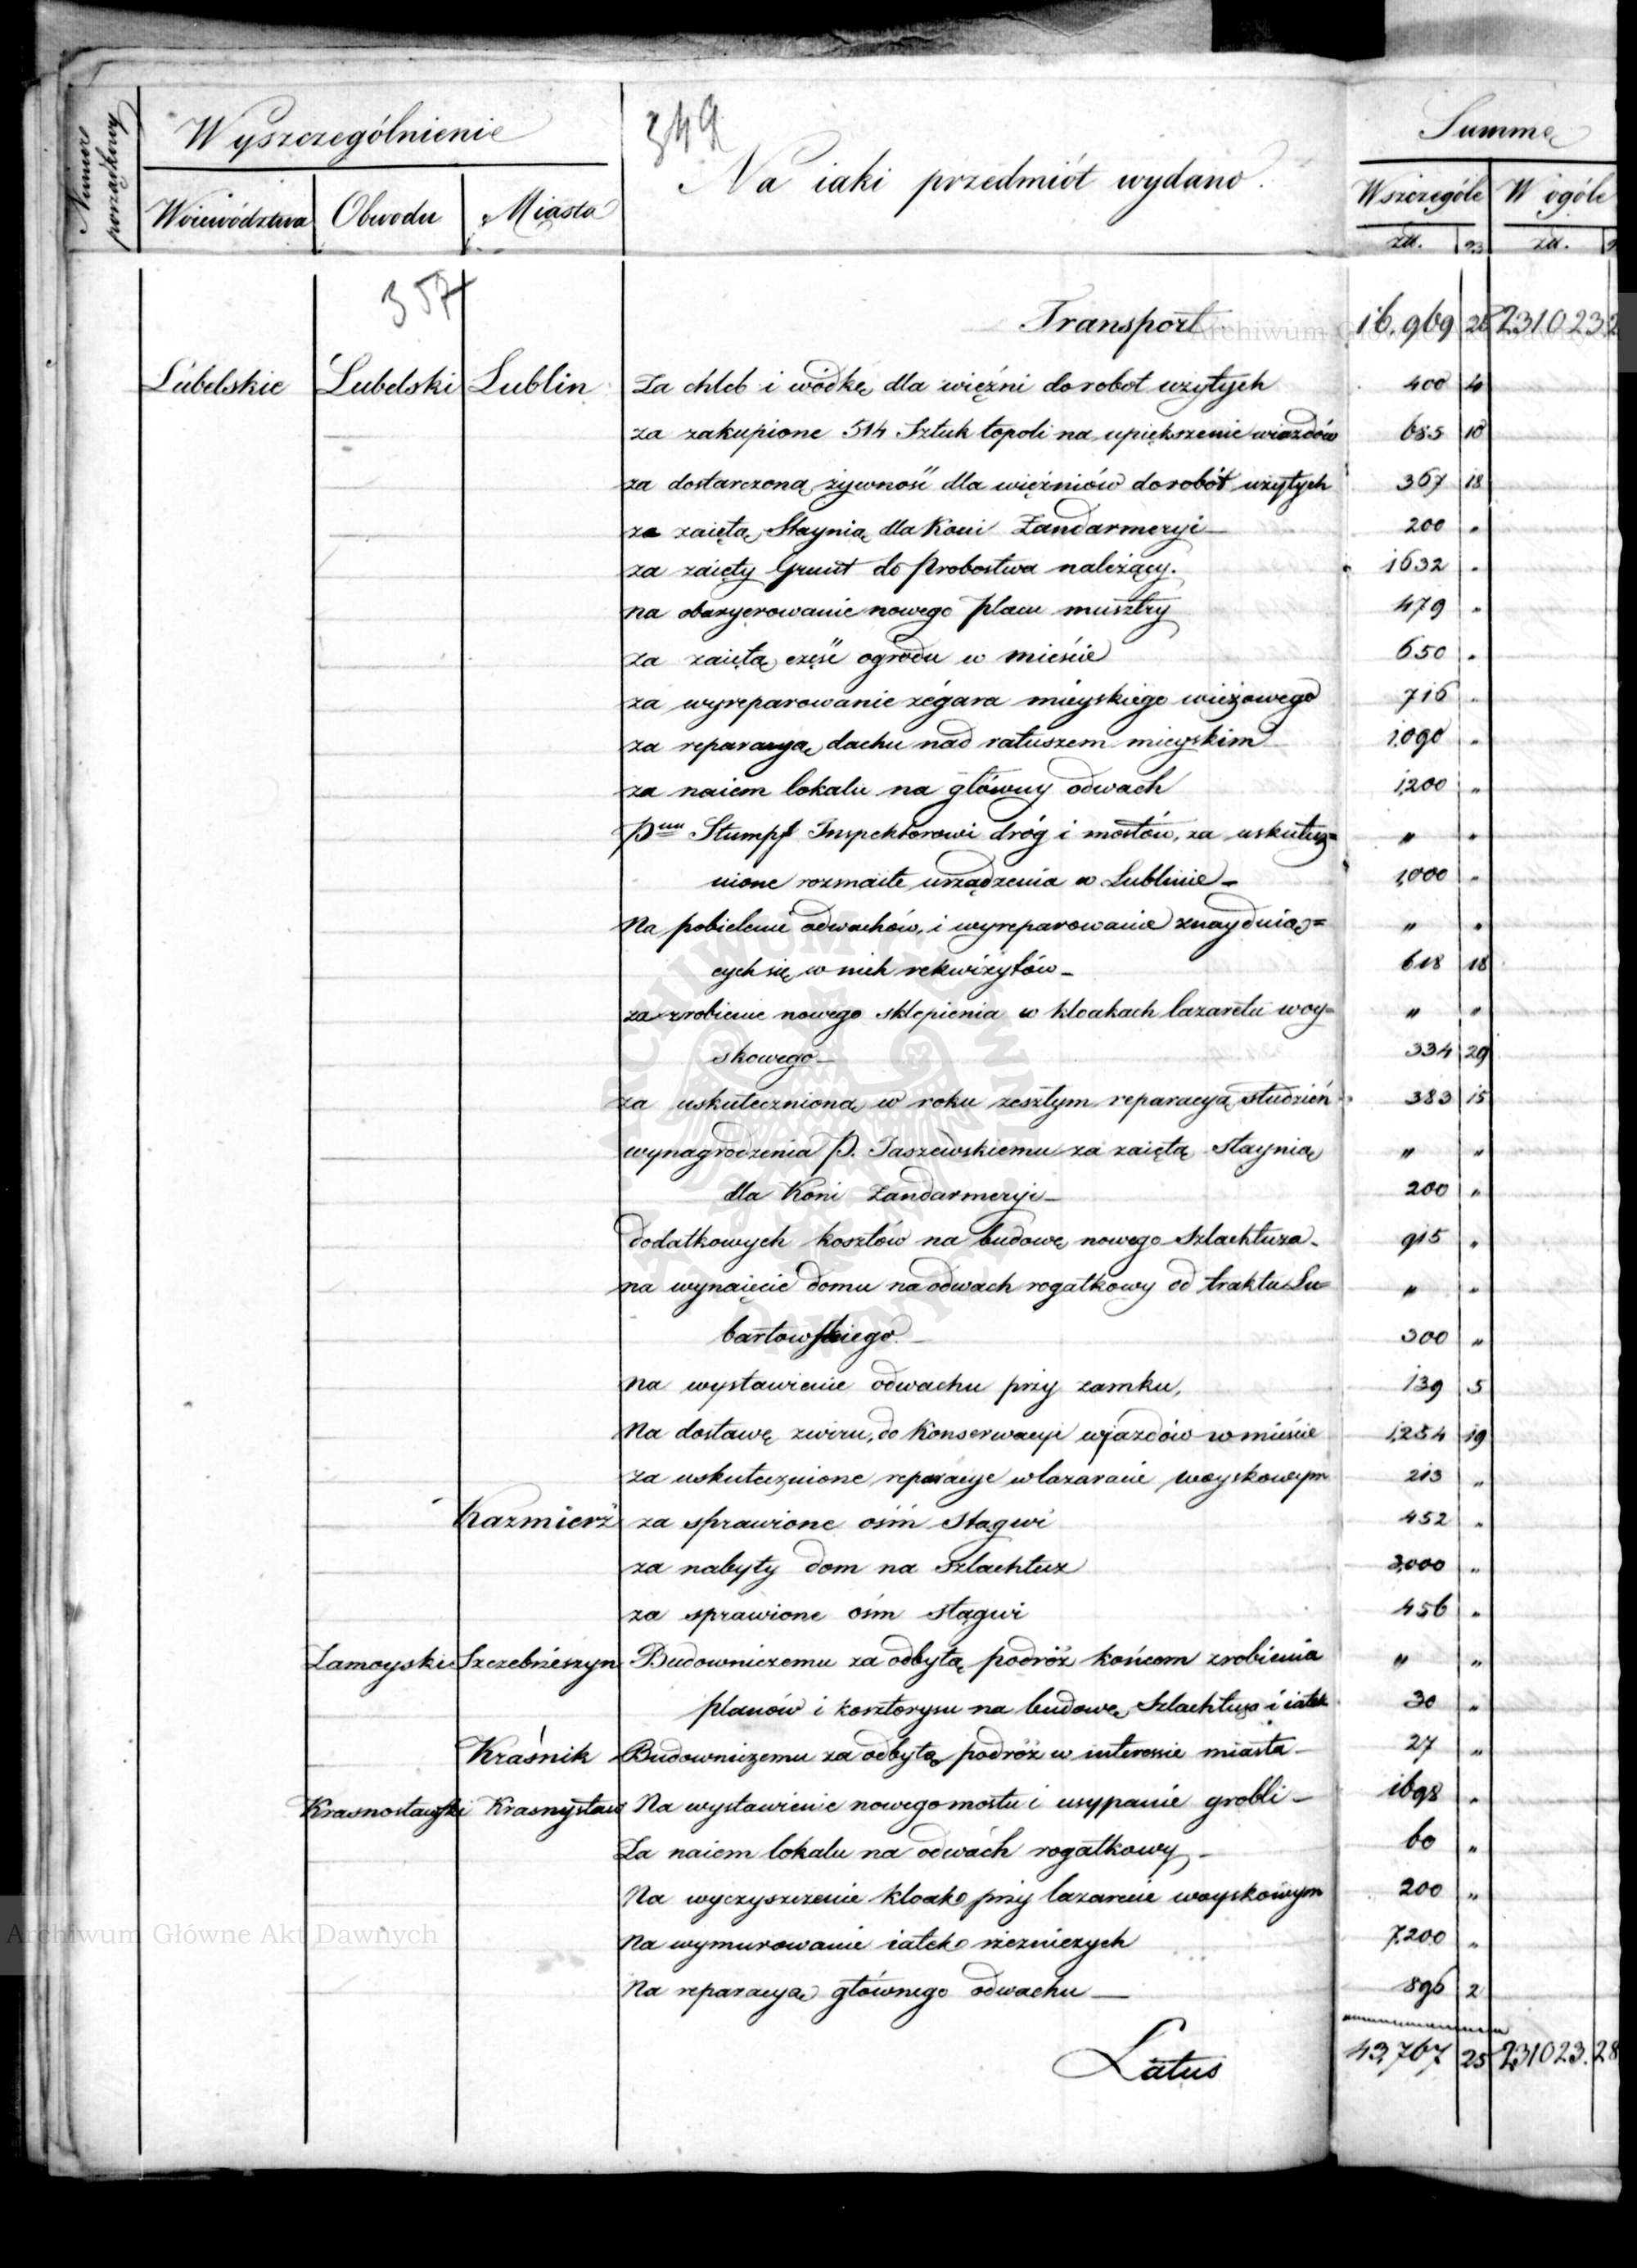 Numer porządkowy
Wyszczególnienie
349
Summa
Na iaki przedmiót wydano.
Woiewództwa Obwodu Miasta
Wszczególe W ogóle
złł. gr złł.
357
Transport 16,969 28 231023 2
Lubelskie Lubelski Lublin Za chleb i wódkę dla więźni do robot użytych 400 4
za zakupione 514 Sztuk topoli na upiększenie wiazdów 685 10
za dostarczoną żywność dla więźniów do robót użytych 367 18
za zaiętą Staynią dla Koni Żandarmeryi 200 "
za zaięty Grunt do Probostwa należący. 1632 "
na obaryerowanie nowego placu musztry 479 "
za zaiętą część ogrodu w mieście 650 "
za wyreparowanie zégara mieyskiego wieżowego 716 "
za reparacyą dachu nad ratuszem mieyskim 1,090 "
za naiem lokalu na główny odwach 1,200 "
Pnu Stumpf Inspektorowi dróg i mostów, za uskutecz= " "
nione rozmaite urządzenia w Lublinie 1,000 "
Na pobielenie odwachów, i wyreparowanie znayduią= " "
cych się w nich rekwizytów 618 18
za zrobienie nowego sklepienia w kloakach lazaretu woy= " "
skowego 334 29
za uskutecznioną w roku zeszłym reparacyą studzień 383 15
wynagrodzenia P. Jaszewskiemu za zaiętą Staynią " "
dla Koni Żandarmeryi 200 "
dodatkowych kosztów na budowę nowego Szlachtuza 915 "
na wynaięcie domu na odwach rogatkowy od traktu Lu= " "
bartowskiego 300 "
Na wystawienie odwachu przy zamku, 139 5
Na dostawę zwiru, do Konserwacyi wjazdów w mieście 1,254 19
za uskutecznione reparacye w lazaracie woyskowym 213 "
Kazmierz za sprawione ośm Stągwi 452 "
za nabyty dom na Szlachtuz 3,000 "
za sprawione ośm stągwi 456 "
Zamoyski Szczebrzeszyn Budowniczemu za odbytą podróż końcem zrobienia " "
planów i kosztorysu na budowę Szlachtuza i iatek 30 "
Kraśnik Budowniczemu za odbytą podróż w interessie miasta 27 "
Krasnostawski Krasnystaw Na wystawienie nowego mostu i usypanie grobli 1698 "
Za naiem lokalu na odwach rogatkowy 60 "
Na wyczyszczenie kloak przy lazarecie woyskowym 200 "
Na wymurowanie iatek rzezniczych 7,200 "
Na reparacyą głównego odwachu 896 2
Latus 43,767 25 231023. 28
Archiwum Główne Akt Dawnych